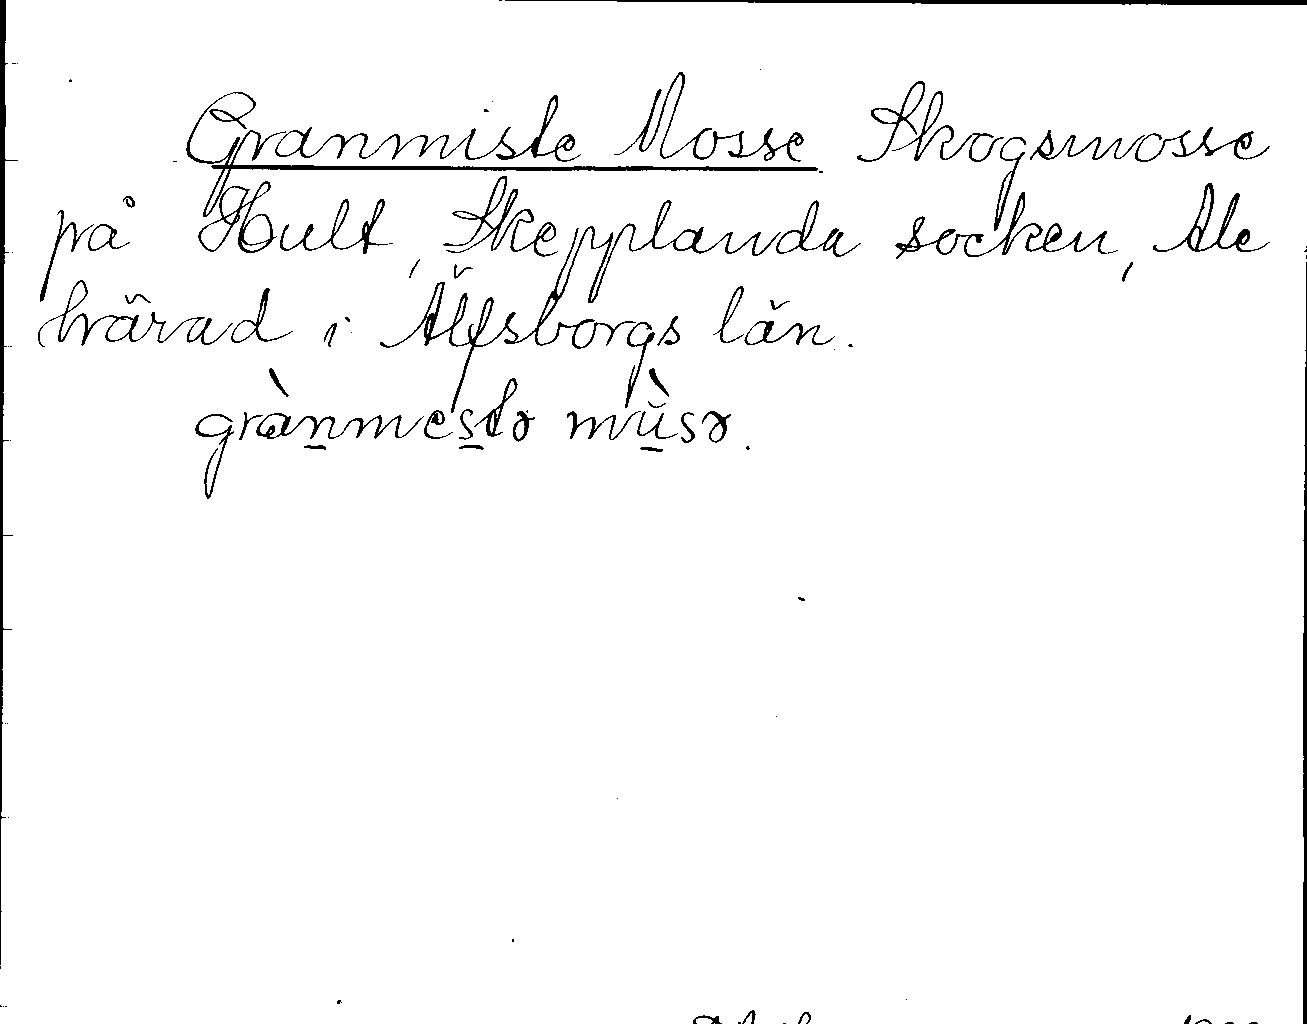 Granmiste Mosse Skogsmosse
på Hult, Skepplanda socken, Ale
härad i Älfsborgs län.
grànmestə mùsə.